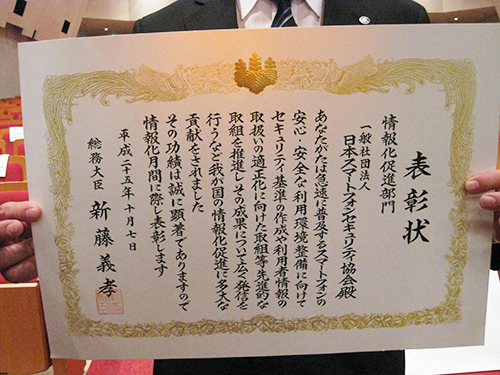 表彰状
情報化促進部門
一般社団法人
日本スマートフォンセキュリティ協会殿
あなたがたは急速に普及するスマートフォンの
安心・安全な利用環境整備に向けて
セキュリティ基準の作成や利用者情報の
取扱いの適正化に向けた取組等先進的な
取組を推進しその成果について広く発信を
行うなど我が国の情報化促進に多大な
貢献をされました
その功績は誠に顕著でありますので
情報化月間に際し表彰します
平成二十五年十月七日
総務大臣 新藤義孝